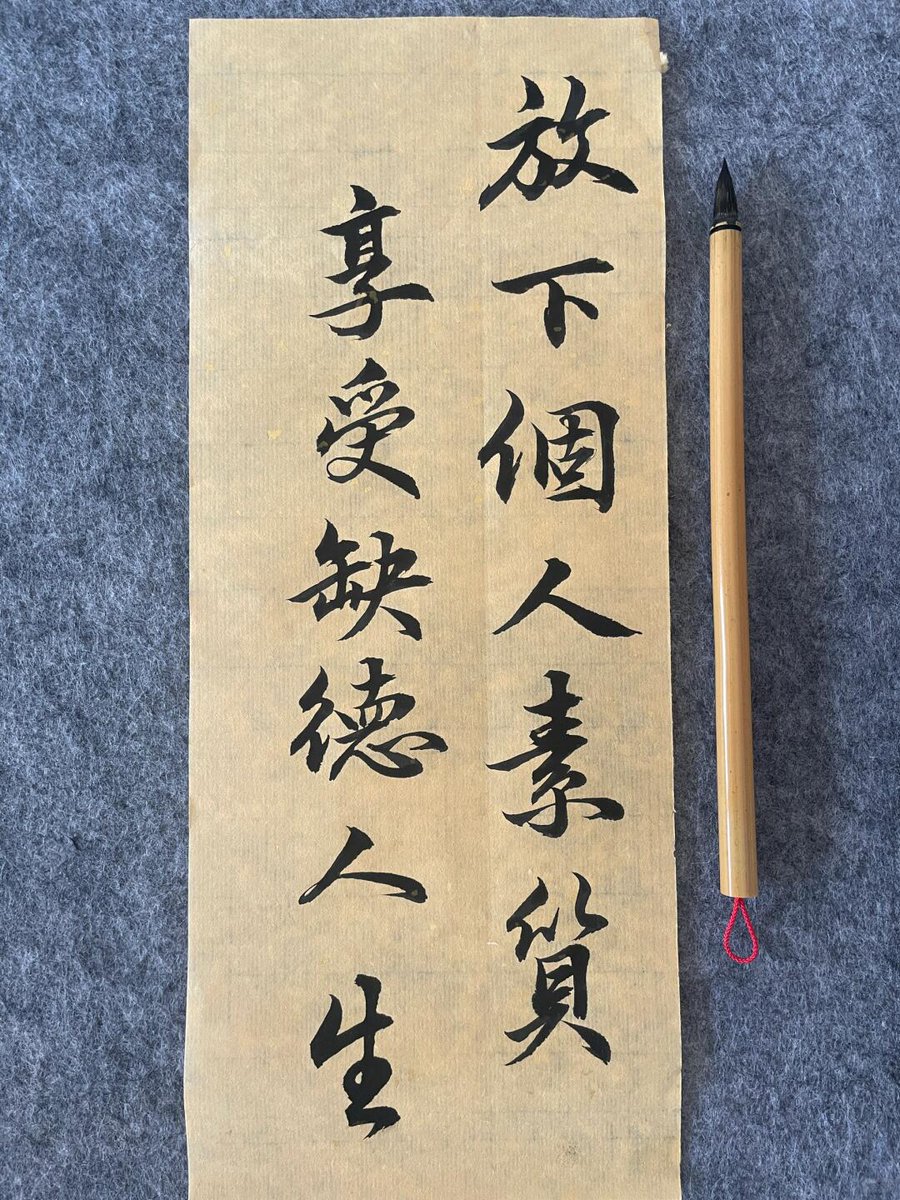 放下個人素質
享受缺德人生